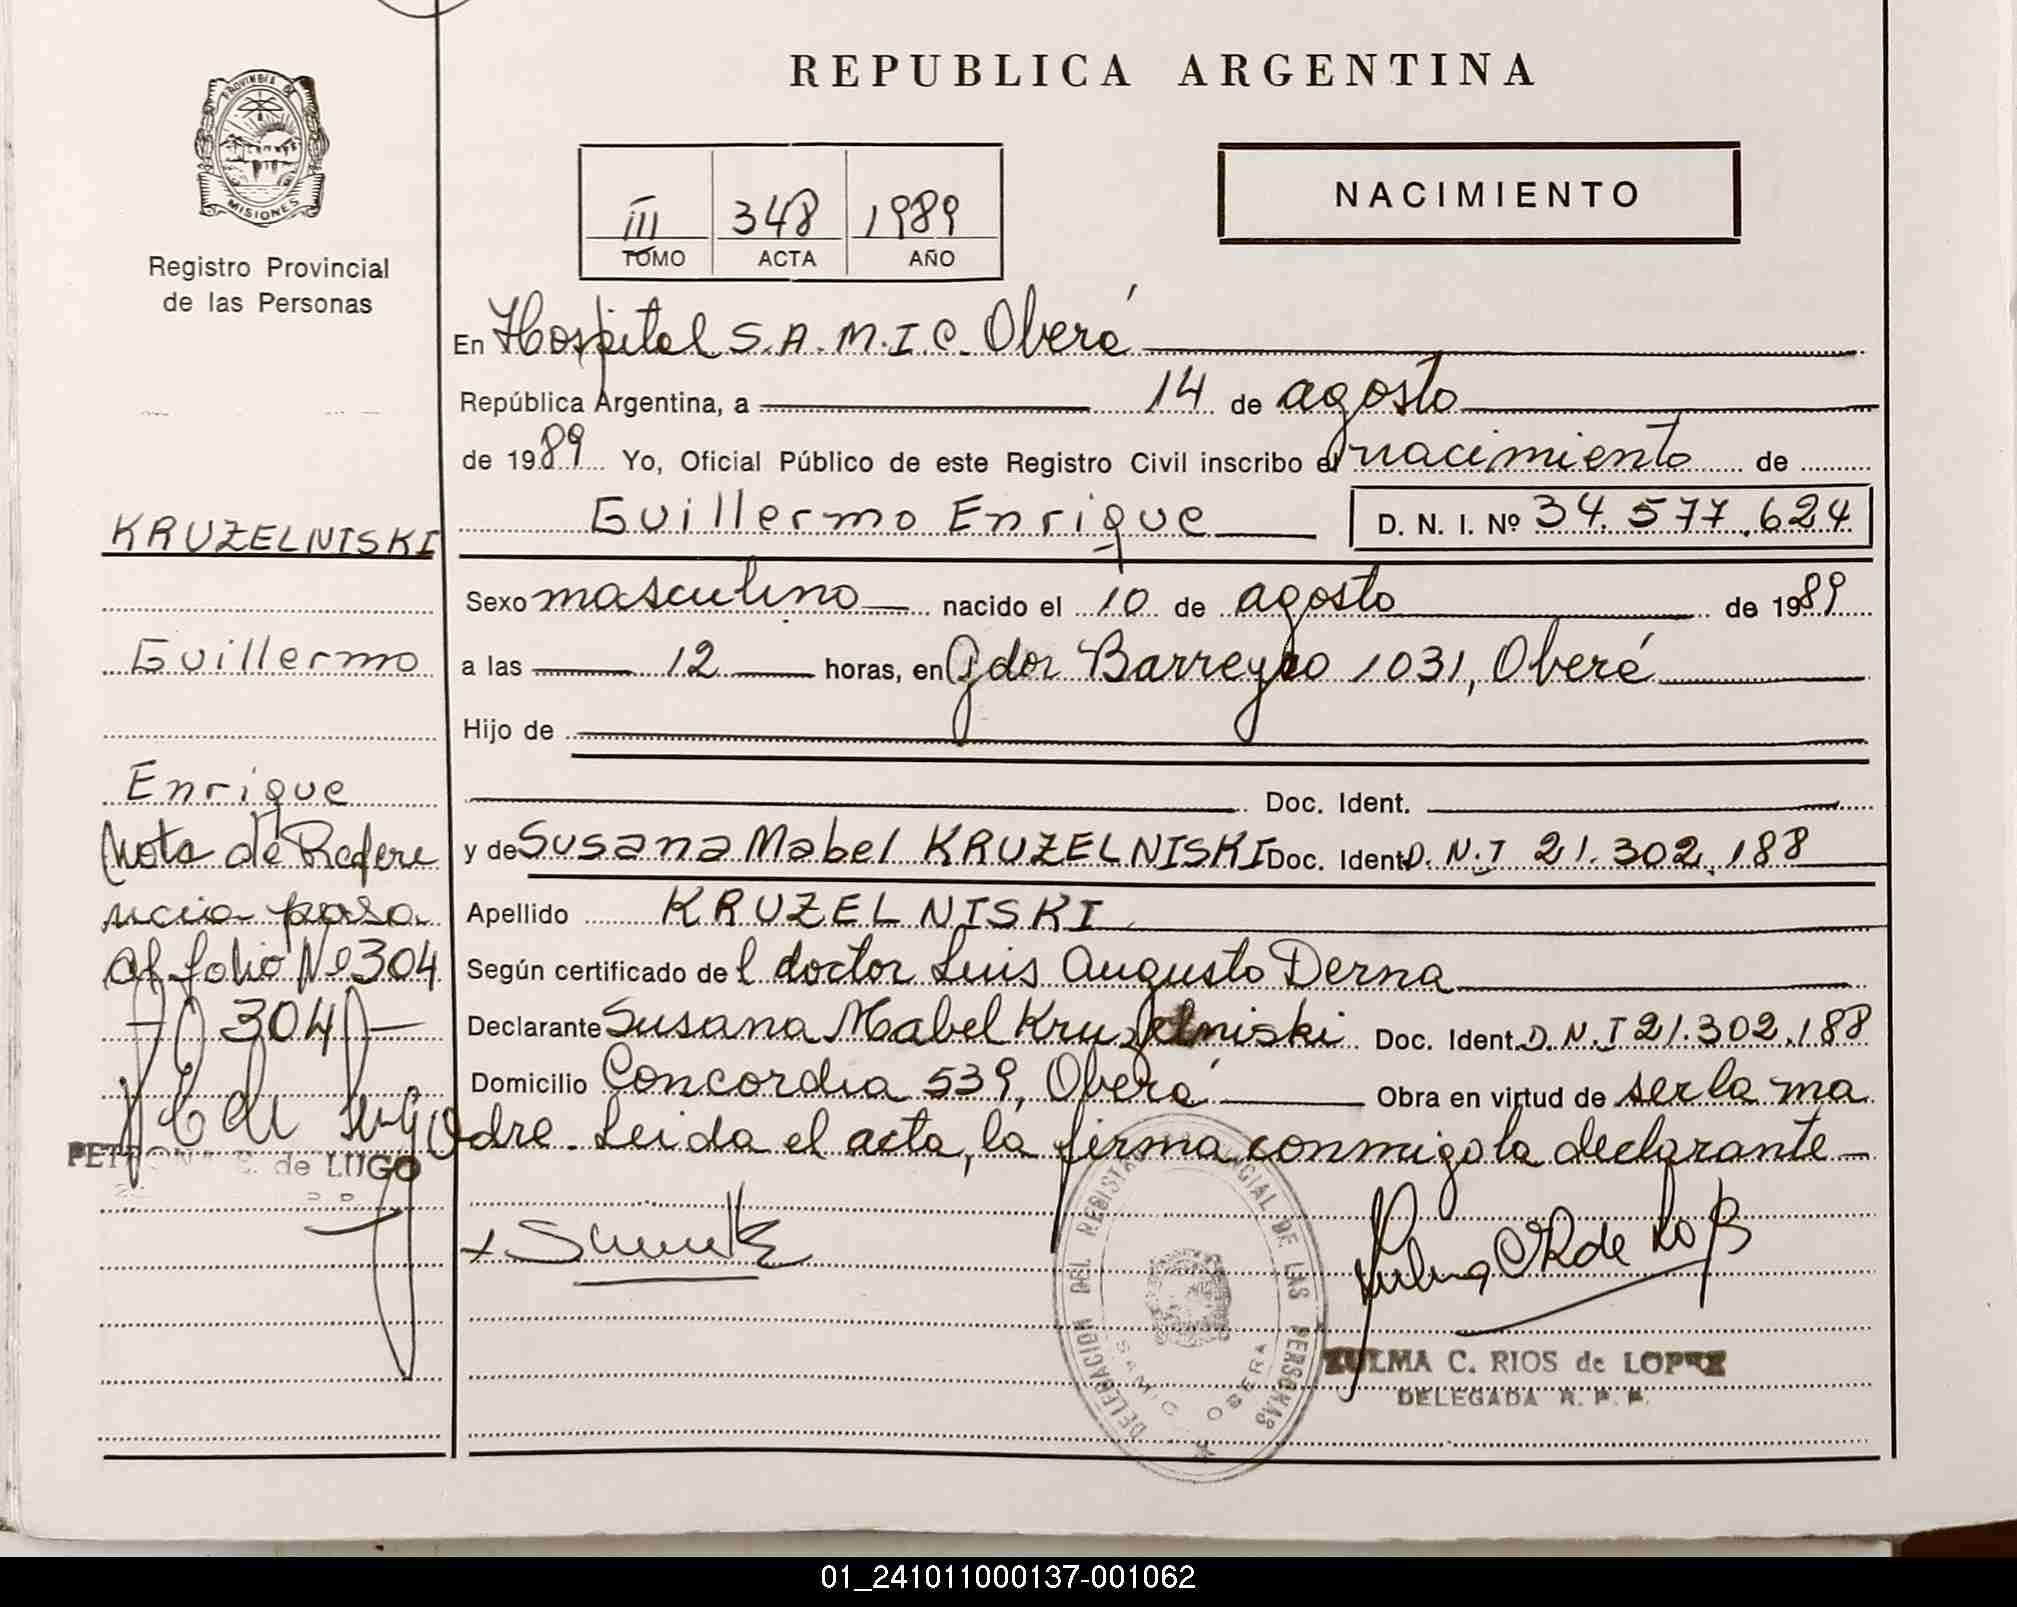 REPUBLICA ARGENTINA
PROVINCIA DE
MISIONES
Registro Provincial
de las Personas
III 348 1989
TOMO ACTA AÑO
NACIMIENTO
En Hospital S.A.M.I.C. Oberá
República Argentina, a 14 de agosto
de 1989 Yo, Oficial Público de este Registro Civil inscribo el nacimiento de
Guillermo Enrique D. N. I. Nº 34.577.624
Sexo masculino nacido el 10 de agosto de 1989
a las 12 horas, en Gdor Barreyro 1031, Oberá
Hijo de
Doc. Ident.
y de Susana Mabel KRUZELNISKI Doc. Ident. D.N.I 21.302.188
Apellido KRUZELNISKI
Según certificado del doctor Luis Augusto Derna
Declarante Susana Mabel Kruzelniski Doc. Ident. D.N.I 21.302.188
Domicilio Concordia 539, Oberá Obra en virtud de ser la ma
dre. Leida el acta, la firma conmigo la declarante
KRUZELNISKI
Guillermo
Enrique
Nota de Refere
ncia pasa
al folio Nº 304
304
de LUGO
DELEGACION DEL REGISTRO PROVINCIAL DE LAS PERSONAS
SAMIC OBERA
ZULMA C. RIOS de LOPEZ
DELEGADA R. P. P.
01_241011000137-001062